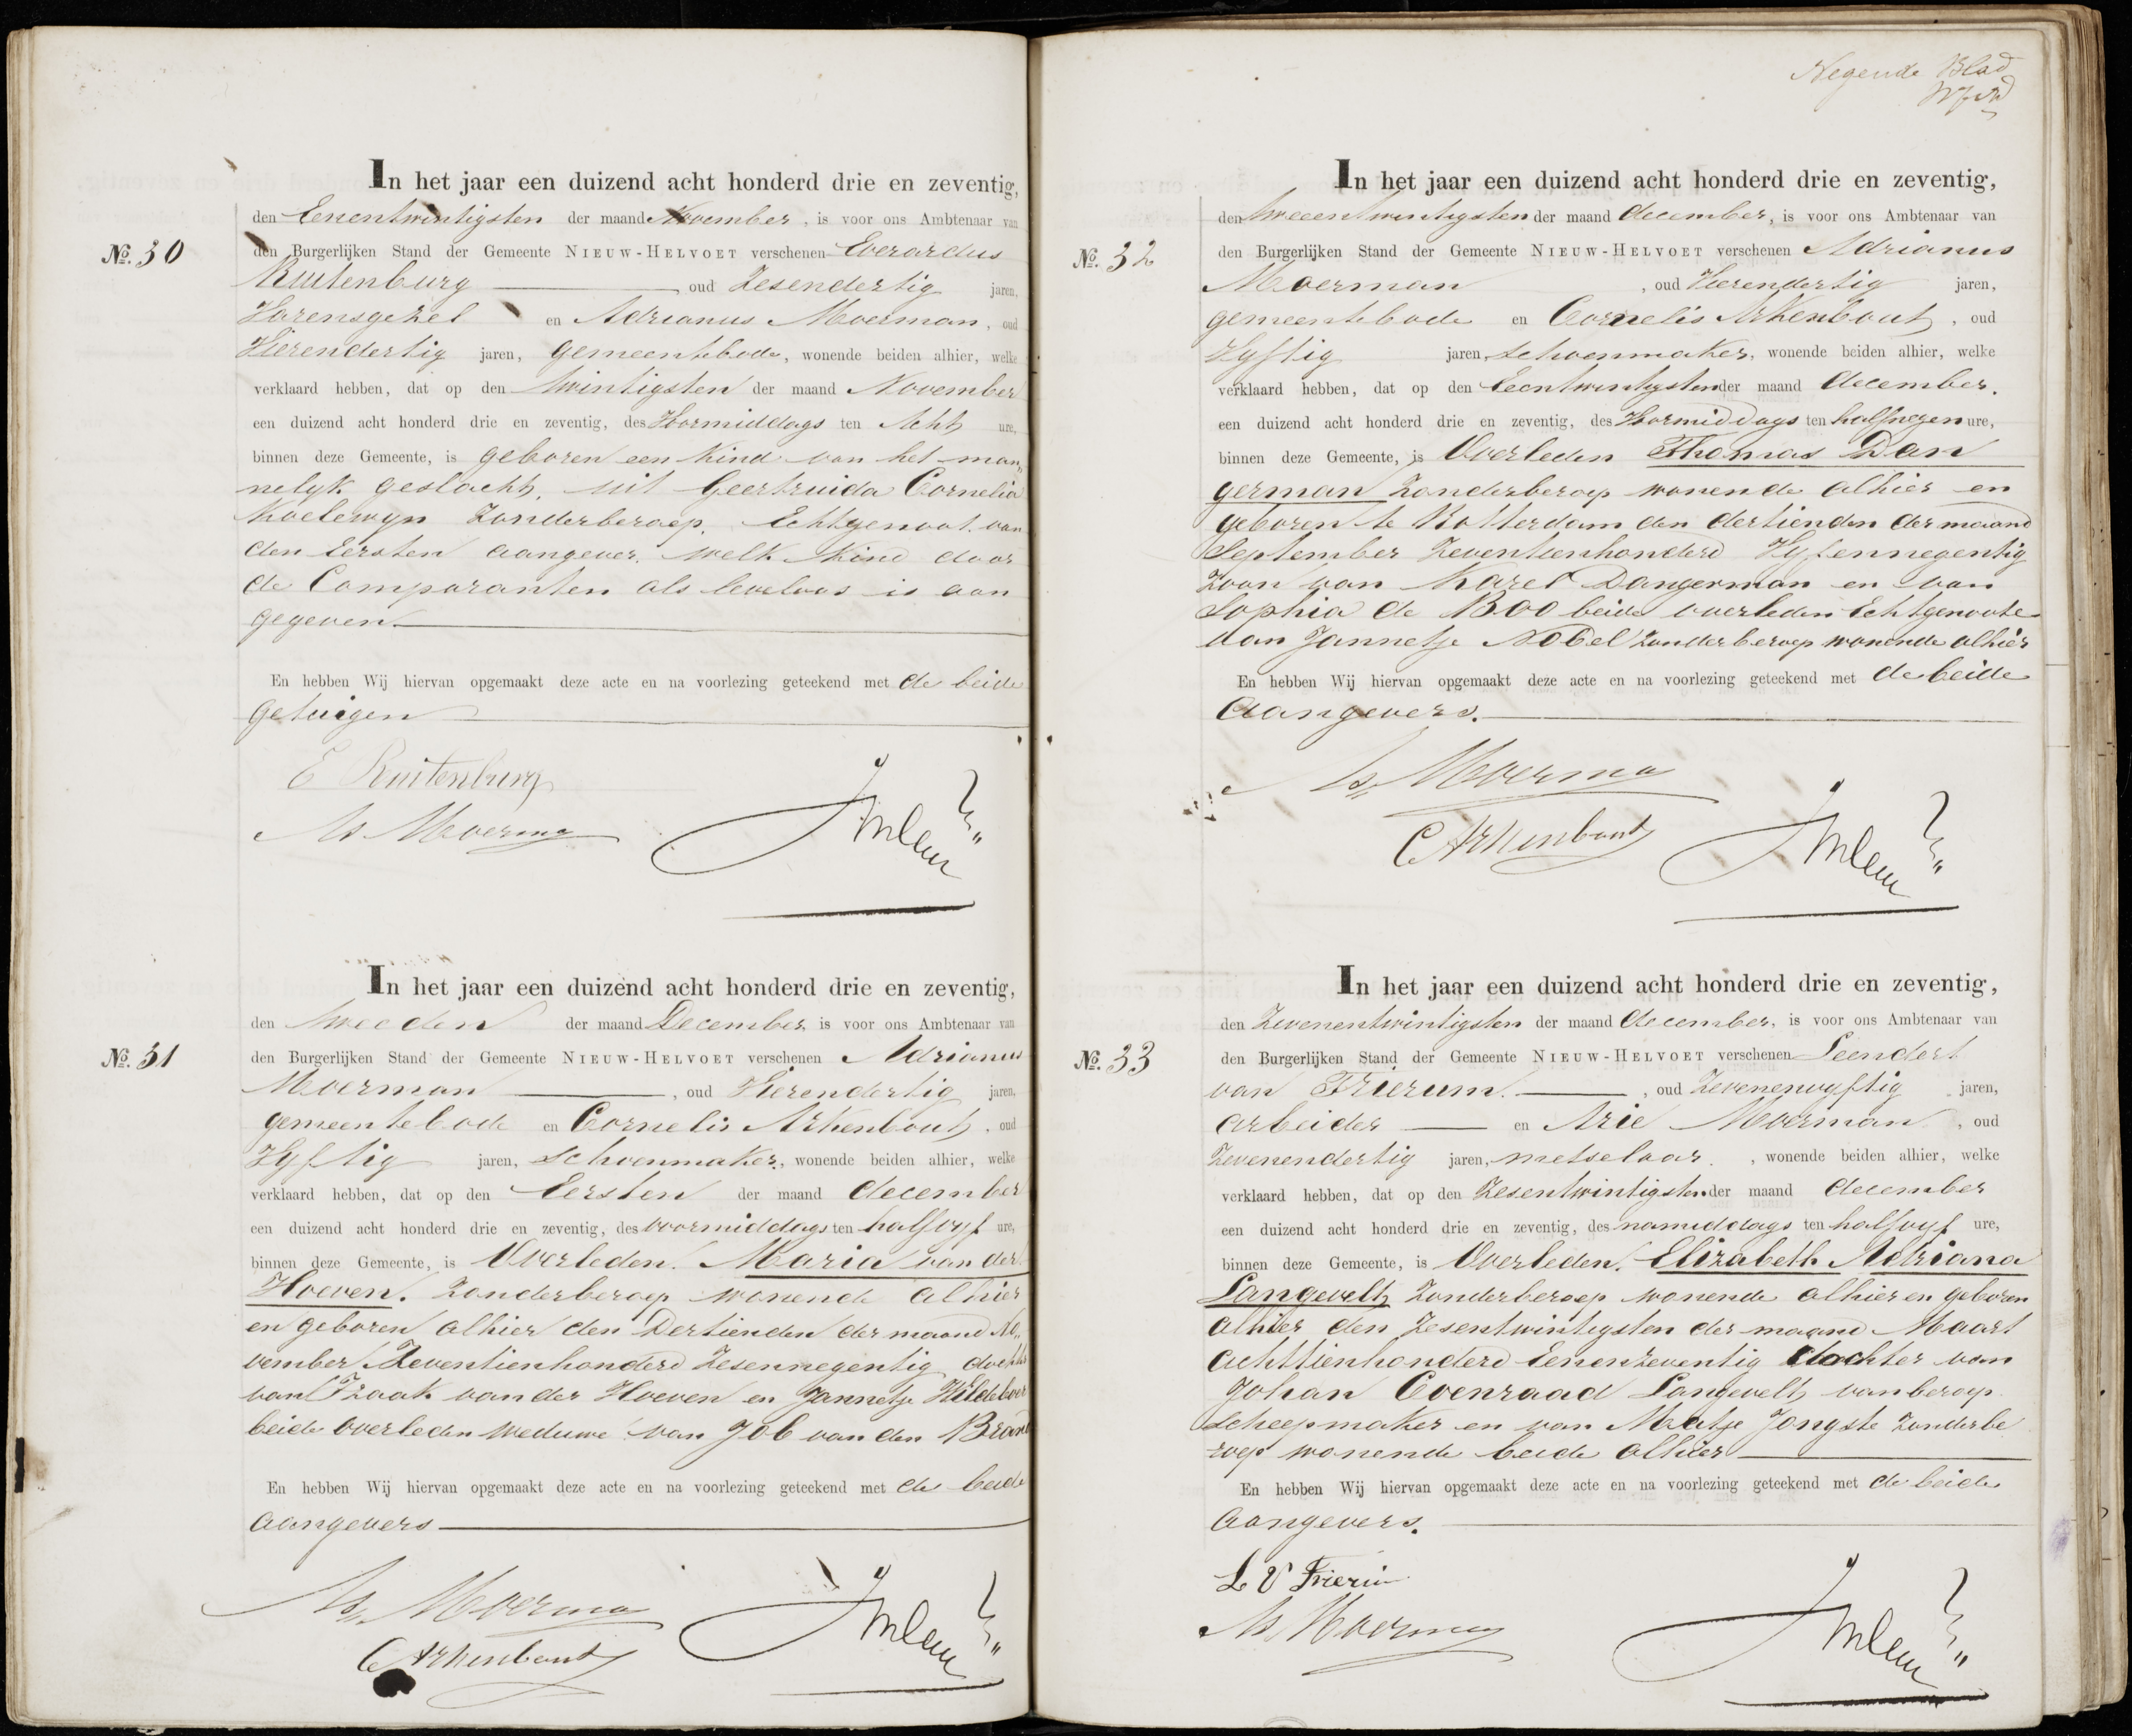 In het jaar een duizend acht honderd drie en zeventig,
den Eenentwintigsten der maand November, is voor ons Ambtenaar van
No. 30 den Burgerlijken Stand der Gemeente NIEUW-HELVOET verschenen Everardus
Ruitenburg oud Zesendertig jaren,
en Adrianus Moerman, oud
Vierendertig jaren, gemeentebode, wonende beiden alhier, welke
verklaard hebben, dat op den twintigsten der maand November
een duizend acht honderd drie en zeventig, des Voormiddags ten Acht ure,
binnen deze Gemeente, is geboren een Kind van het man„
nelyk geslacht, uit Geertruida Cornelia
Koelewyn Zonderberoep, Echtgenoot van
den Eersten aangever, welk Kind door
de Comparanten als leveloos is aan
gegeven.
En hebben Wij hiervan opgemaakt deze acte en na voorlezing geteekend met de beide
getuigen
E Ruitenburg
As Moerman
In het jaar een duizend acht honderd drie en zeventig,
den tweeden der maand December, is voor ons Ambtenaar van
No. 31 den Burgerlijken Stand der Gemeente NIEUW-HELVOET verschenen Adrianus
Moerman, oud Vierendertig jaren,
gemeentebode en Cornelis Arkenbout, oud
Vyftig jaren, Schoenmaker, wonende beiden alhier, welke
verklaard hebben, dat op den Eersten der maand december
een duizend acht honderd drie en zeventig, des voormiddags ten halfvyf ure,
binnen deze Gemeente, is Overleden. Maria van der
Hoeven. Zonderberoep wonende alhier
en geboren alhier den Dertienden der maand No„
vember Zeventienhonderd Zesennegentig dochter
van Izaak van der Hoeven en Jannetje Hildeboer
beide overleden weduwe van Job van den Brand
En hebben Wij hiervan opgemaakt deze acte en na voorlezing geteekend met de beide
aangevers
As Moerman
C Arkenbout
Negende Blad
In het jaar een duizend acht honderd drie en zeventig,
den tweeentwintigsten der maand december, is voor ons Ambtenaar van
No. 32 den Burgerlijken Stand der Gemeente NIEUW-HELVOET verschenen Adrianus
Moerman, oud Vierendertig jaren,
gemeentebode en Cornelis Arkenbout, oud
Vyftig jaren, schoenmaker, wonende beiden alhier, welke
verklaard hebben, dat op den Eentwintigsten der maand december.
een duizend acht honderd drie en zeventig, des Voormiddags ten halfnegen ure,
binnen deze Gemeente, is Overleden Thomas Dan
german Zonderberoep wonende alhier en
geboren te Rotterdam den dertienden der maand
September Zeventienhonderd Vyfennegentig
Zoon van Karel Dangerman en van
Sophia de Boo beide overleden Echtgenoote
van Jannetje Nobel Zonderberoep wonende alhier
En hebben Wij hiervan opgemaakt deze acte en na voorlezing geteekend met de beide
aangevers.
As Moerman
C Arkenbout
In het jaar een duizend acht honderd drie en zeventig,
den Zevenentwintigsten der maand december, is voor ons Ambtenaar van
No. 33 den Burgerlijken Stand der Gemeente NIEUW-HELVOET verschenen Leendert
van Frierum., oud Zevenenvyftig jaren,
arbeider en Arie Moerman, oud
Zevenendertig jaren, metselaar., wonende beiden alhier, welke
verklaard hebben, dat op den Zesentwintigsten der maand december
een duizend acht honderd drie en zeventig, des namiddags ten halfvyf ure,
binnen deze Gemeente, is Overleden. Elizabeth Adriana
Langevelt, Zonderberoep wonende alhier en geboren
alhier den Zesentwintigsten der maand Maart
achttienhonderd Eenenzeventig dochter van
Johan Coenraad Langevelt, van beroep
scheepmaker en van Maatje Jongste Zonderbe
roep wonende beide alhier
En hebben Wij hiervan opgemaakt deze acte en na voorlezing geteekend met de beide
aangevers.
L V Frierum
As Moerman